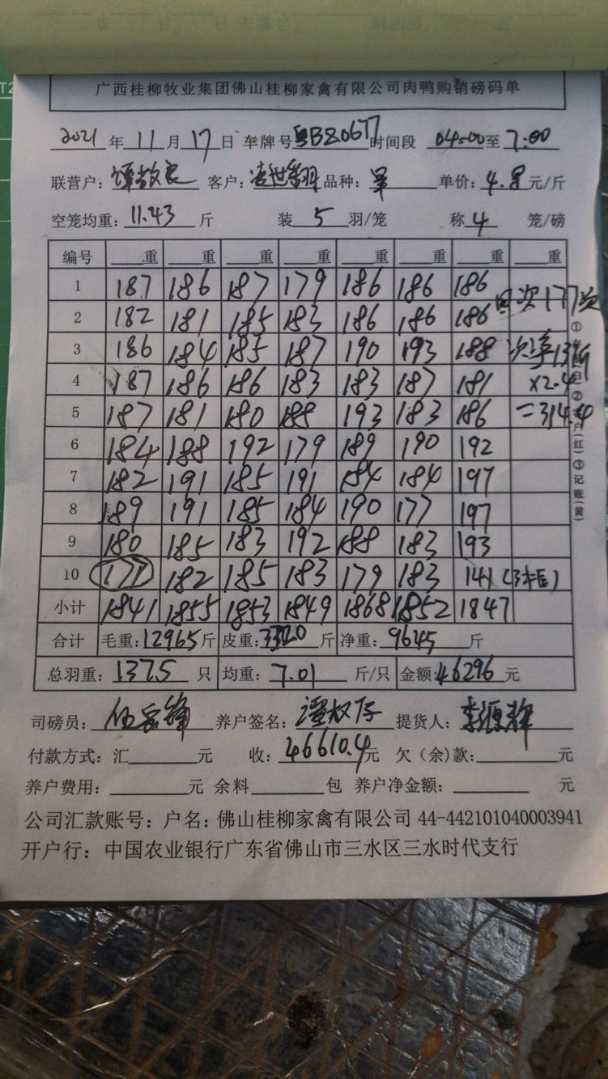 广西桂柳牧业集团佛山桂柳家禽有限公司肉鸭购销磅码单
2021 年 11 月 17 日 车牌号 粤BZ0677 时间段 至 7:00
联营户: 客户: 品种: 单价: 4.8 元/斤
空笼均重: 11.43 斤 装 5 羽/笼 称 4 笼/磅
编号 重 重 重 重 重 重 重 重
1 187 186 187 179 186 186 186
2 182 181 185 183 186 186 186
3 186 184 185 187 190 193 188
4 187 186 186 183 183 187 181
5 187 181 180 188 193 183 186
6 184 188 192 179 189 190 192
7 182 191 185 191 184 184 197
8 189 191 185 184 190 177 197
9 180 185 183 192 188 183 193
10 177 182 185 183 179 183 141 (3笼)
小计 1841 1855 1853 1849 1868 1852 1847
177次
131斤
×2.4
=314.4
合计 毛重: 12965 斤 皮重: 3320 斤 净重: 9645 斤
总羽重: 1375 只 均重: 7.01 斤/只 金额 46296 元
司磅员: 养户签名: 提货人:
付款方式: 汇 元 收: 46610.4 元 欠(余)款: 元
养户费用: 元 余料 包 养户净金额: 元
公司汇款账号: 户名: 佛山桂柳家禽有限公司 44-442101040003941
开户行: 中国农业银行广东省佛山市三水区三水时代支行